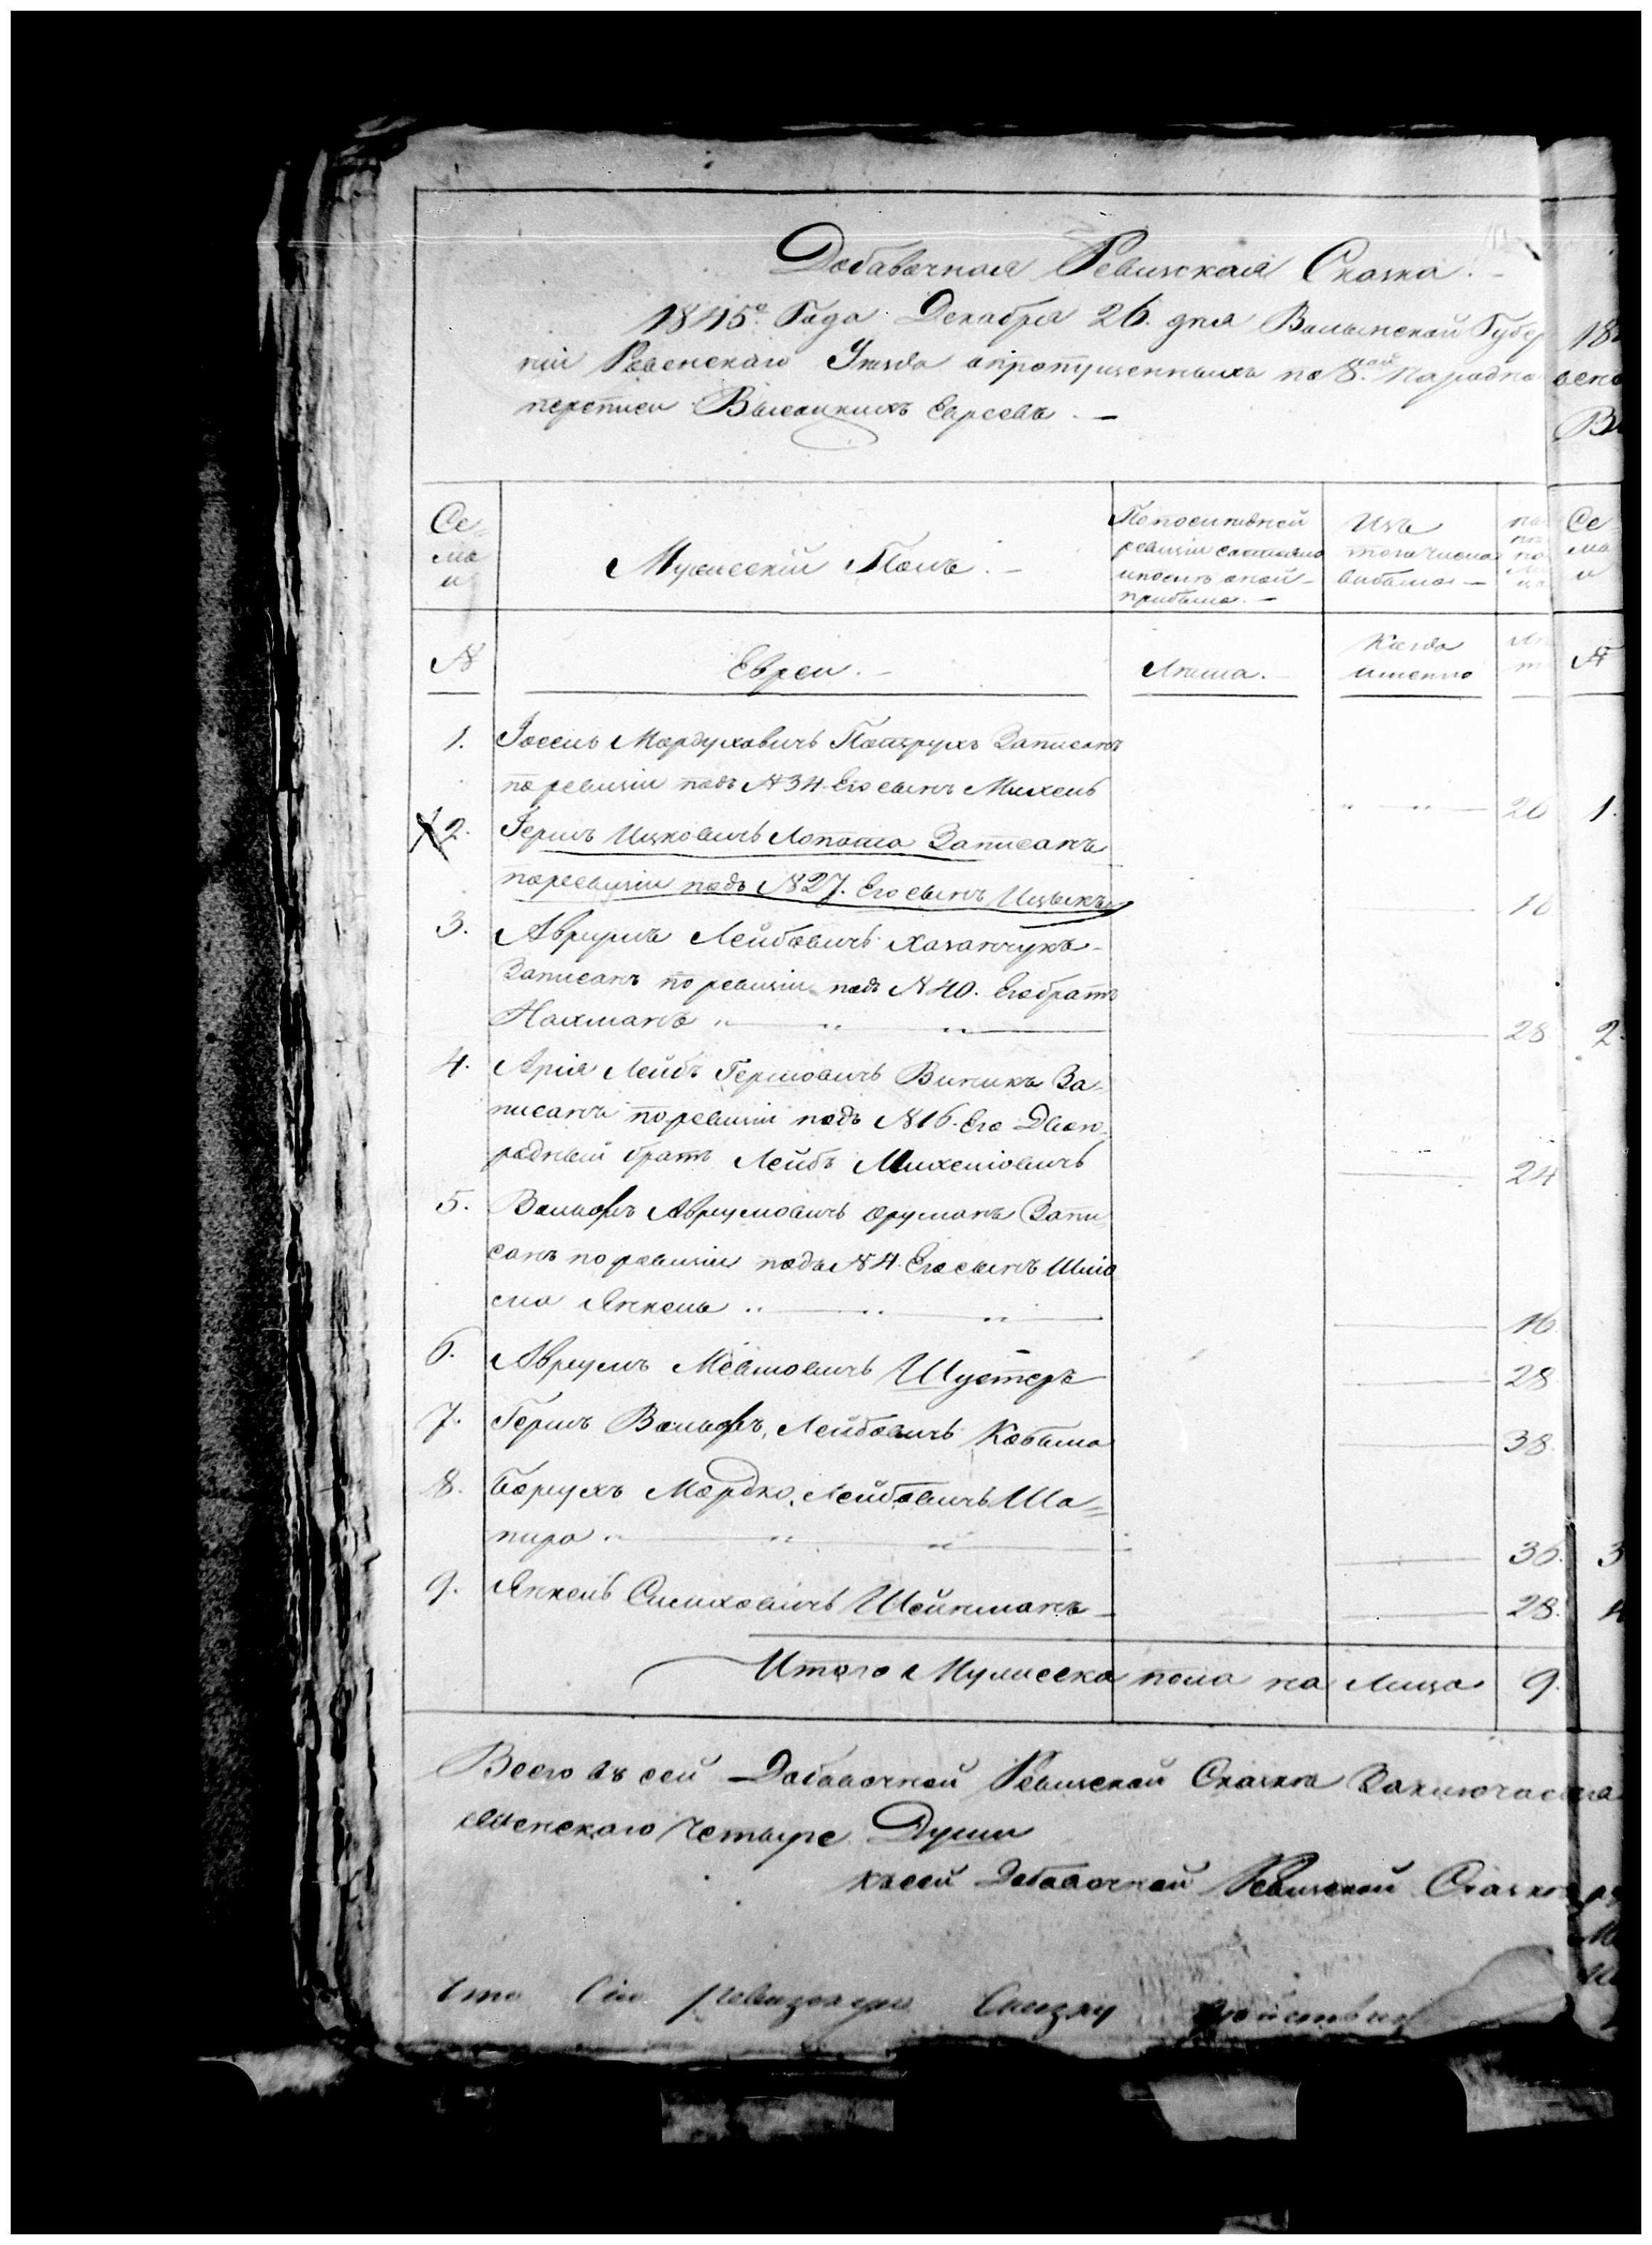 Добавочная Ревизская Сказка.
1845го Года Декабря 26. дня Волынской Губер
ніи Ровенскаго Уезда о пропущенныхъ по 8.ой народно
переписи Высоцкихъ Евреевъ. —
Се-
мь
и
Мужескій Полъ. —
По последней
ревизіи состояло
и после оной
прибыло. —
Изъ
того числа
выбыло —
№
Евреи. —
Лета.
Когда
именно
1. Іосель Мордуховичъ Записанъ
по ревизіи подъ №34. Его сынъ Михель 20
2. Гершъ Ицковичъ Лопата Записанъ
по ревизіи подъ №27. Его сынъ Ицыкъ
3. Аврумъ Лейбовичъ Хазанчукъ
Записанъ по ревизіи подъ №40. Его братъ
Нахманъ 28
4. Арія Лейбъ Гершовичъ Виникъ За-
писанъ по ревизіи подъ №16. Его Двою
родный братъ Лейбъ Михелiовичъ 24
5. Вольфъ Аврумовичъ Фруманъ Запи
санъ по ревизіи подъ №4. Его сынъ Шлiо
ма Янкель 16
6. Аврумъ Шустеръ 28
7. Гершъ Вольфъ, Лейбовичъ Кобыла 38
8. Борухъ Мордко, Лейбовичъ Ша=
пиро 36.
9. Янкель Симховичъ Шейнманъ 28.
Итого Мужеска пола на Лицо 9.
Всего въ сей Добавочной Ревизской Сказке Заключается
Мженскаго Четыре Души
Къ сей Добавочной Ревизской Сказке
Что Сію Ревизскую Сказку
18
Се
мь
и
№
1.
2.
3
4